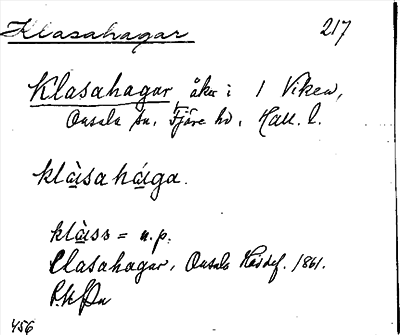 Klasahagar 217
Klasahagar, åker i 1 Viken,
Onsala sn, Fjäre hd, Hall. l.
klàsahága.
klàss = n.p.
Clasahagar, Onsala 1861.
456